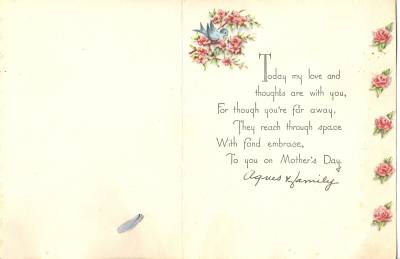 Today my love and
thoughts are with you,
For though you're far away,
They reach through space
With fond embrace,
To you on Mother's Day.
Agnes & family